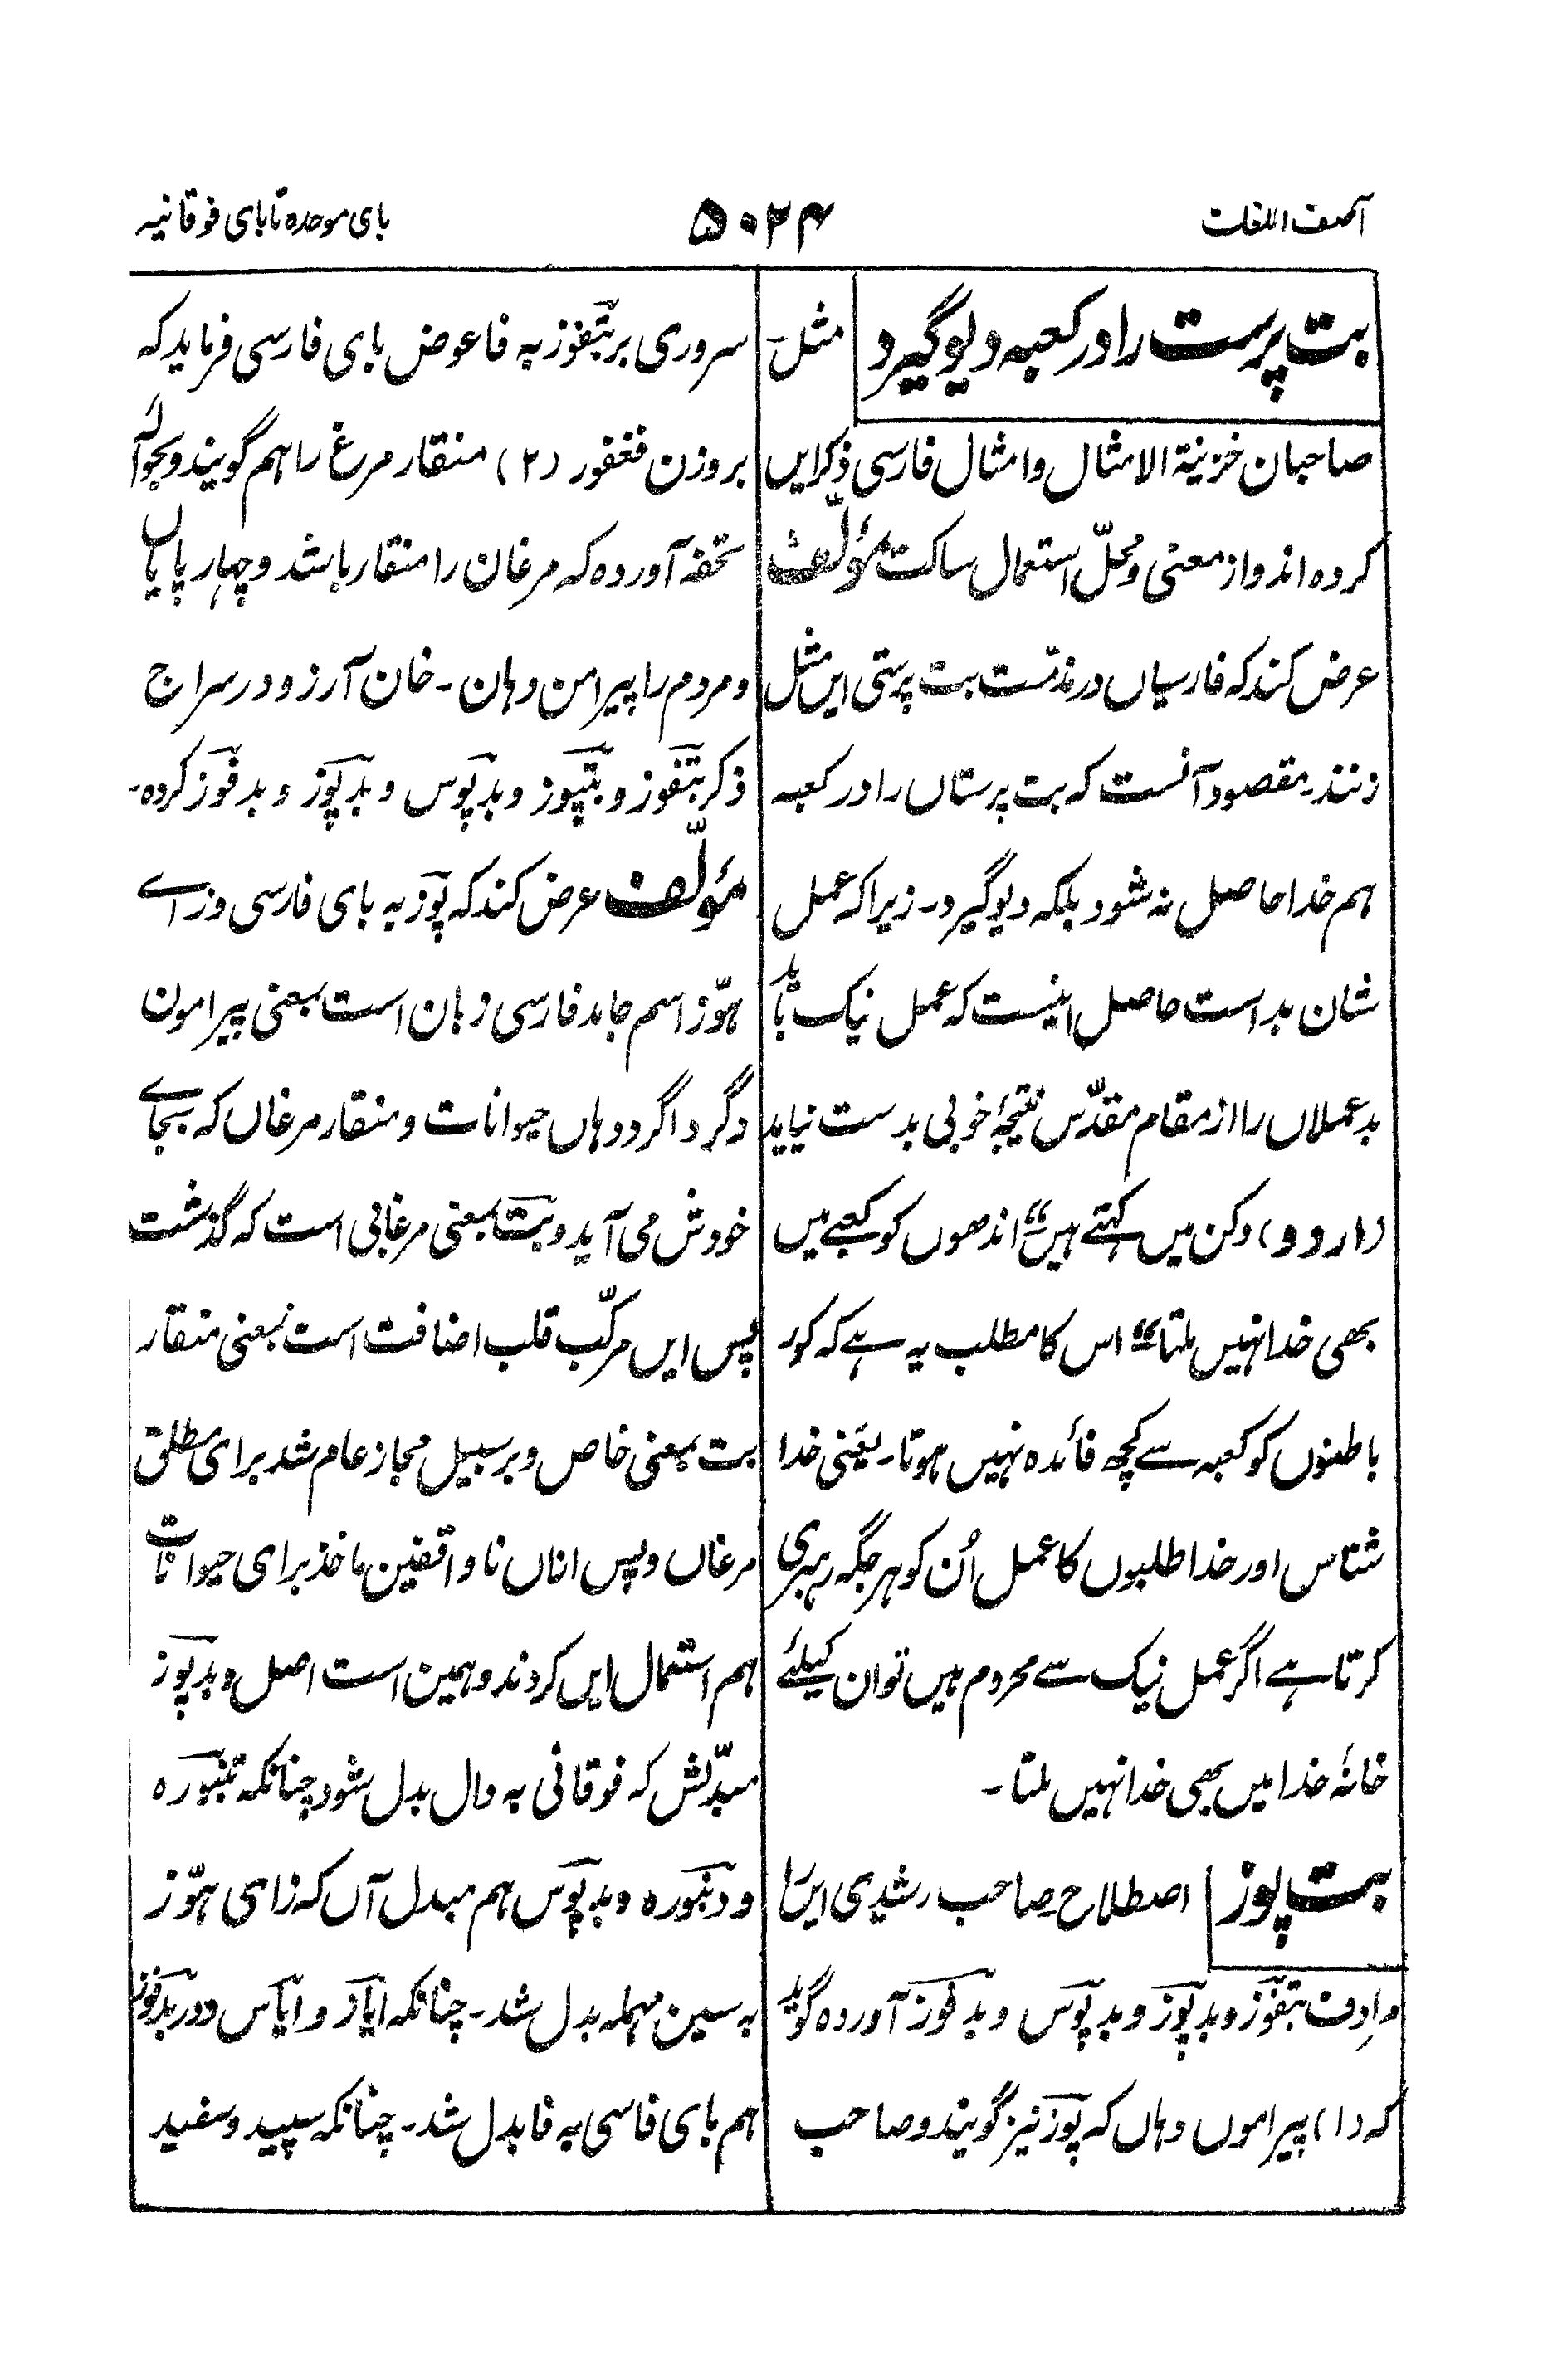 آصف اللغات
۵۰۲۴
بای موحده تا بای فوقانیه
بت پرست را در کعبه دیو گیرد مثل۔
صاحبان خزینة الامثال و امثال فارسی ذکر این
کرده اند و از معنی و محلّ استعمال ساکت مؤلّف
عرض کند که فارسیاں در مذمّت بت پرستی ایں مثل
زنند۔ مقصود آنست که بت پرستاں را در کعبه
هم خدا حاصل نه شود بلکه دیو گیرد۔ زیرا که عمل
شان بد است حاصل اینست که عمل نیک باید
بدعملاں را از مقام مقدّس نتیجۂ خوبی بدست نیاید
(اردو) دکن میں کہتے ہیں ”اندھوں کو کعبے میں
بھی خدا نہیں ملتا“ اس کا مطلب یہ ہے کہ کور
باطنوں کو کعبہ سے کچھ فائدہ نہیں ہوتا۔ یعنی خدا
شناس اور خدا طلبوں کا عمل اُن کو ہر جگہ رہبری
کرتا ہے اگر عمل نیک سے محروم ہیں تو ان کیلئے
خانۂ خدا میں بھی خدا نہیں ملتا۔
بت پوز اصطلاح۔ صاحب رشیدی ایں را
مرادف بتفوز و بدپوز و بدپوس و بدفوز آورده گوید
که (۱) پیراموں دہاں که پوز نیز گویند و صاحب
سروری بر بتفوز به فا عوض بای فارسی فرماید که
بروزن فغفور (۲) منقار مرغ را هم گویند و بحوالۂ
تحفه آورده که مرغان را منقار باشد و چهارپایاں
و مردم را پیرامن دهان۔ خان آرزو در سراج
ذکر بتفوز و بتپوز و بدپوس و بدپوز و بدفوز کرده۔
مؤلّف عرض کند که پوز به بای فارسی و زاے
هوّز اسم جامد فارسی زبان است بمعنی پیرامون
و گرداگرد دهاں حیوانات و منقار مرغاں که بجاے
خودش می آید و بت بمعنی مرغابی است که گذشت
پس ایں مرکّب قلب اضافت است بمعنی منقار
بت بمعنی خاص و بر سبیل مجاز عام شد برای مطلق
مرغاں و پس ازاں ناواقفین ماخذ برای حیوانات
هم استعمال ایں کردند و همین است اصل و بدپوز
مبدّلش که فوقانی به دال بدل شود چنانکه تنبوره
و دنبوره و بدپوس هم مبدل آں که زای هوّز
به سین مهمله بدل شد۔ چنانکه ایاز و ایاس و در بدفوز
هم بای فاسی به فا بدل شد۔ چنانکه سپید و سفید